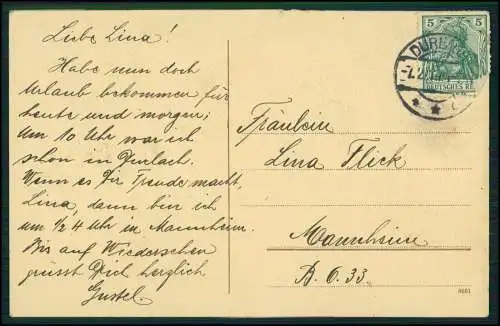 Liebe Lina!
Habe nun doch
Urlaub bekommen für
heute und morgen;
um 10 Uhr war ich
schon in Durlach.
Wenn es Dir Freude macht,
Lina, dann bin ich
um 1/2 4 Uhr in Mannheim.
Bis auf Wiedersehen
grüsst Dich herzlich
Gustel.
5 5
DURL
DEUTSCHES R
Fräulein
Lina Flick
Mannheim
B. 6. 33.
4661